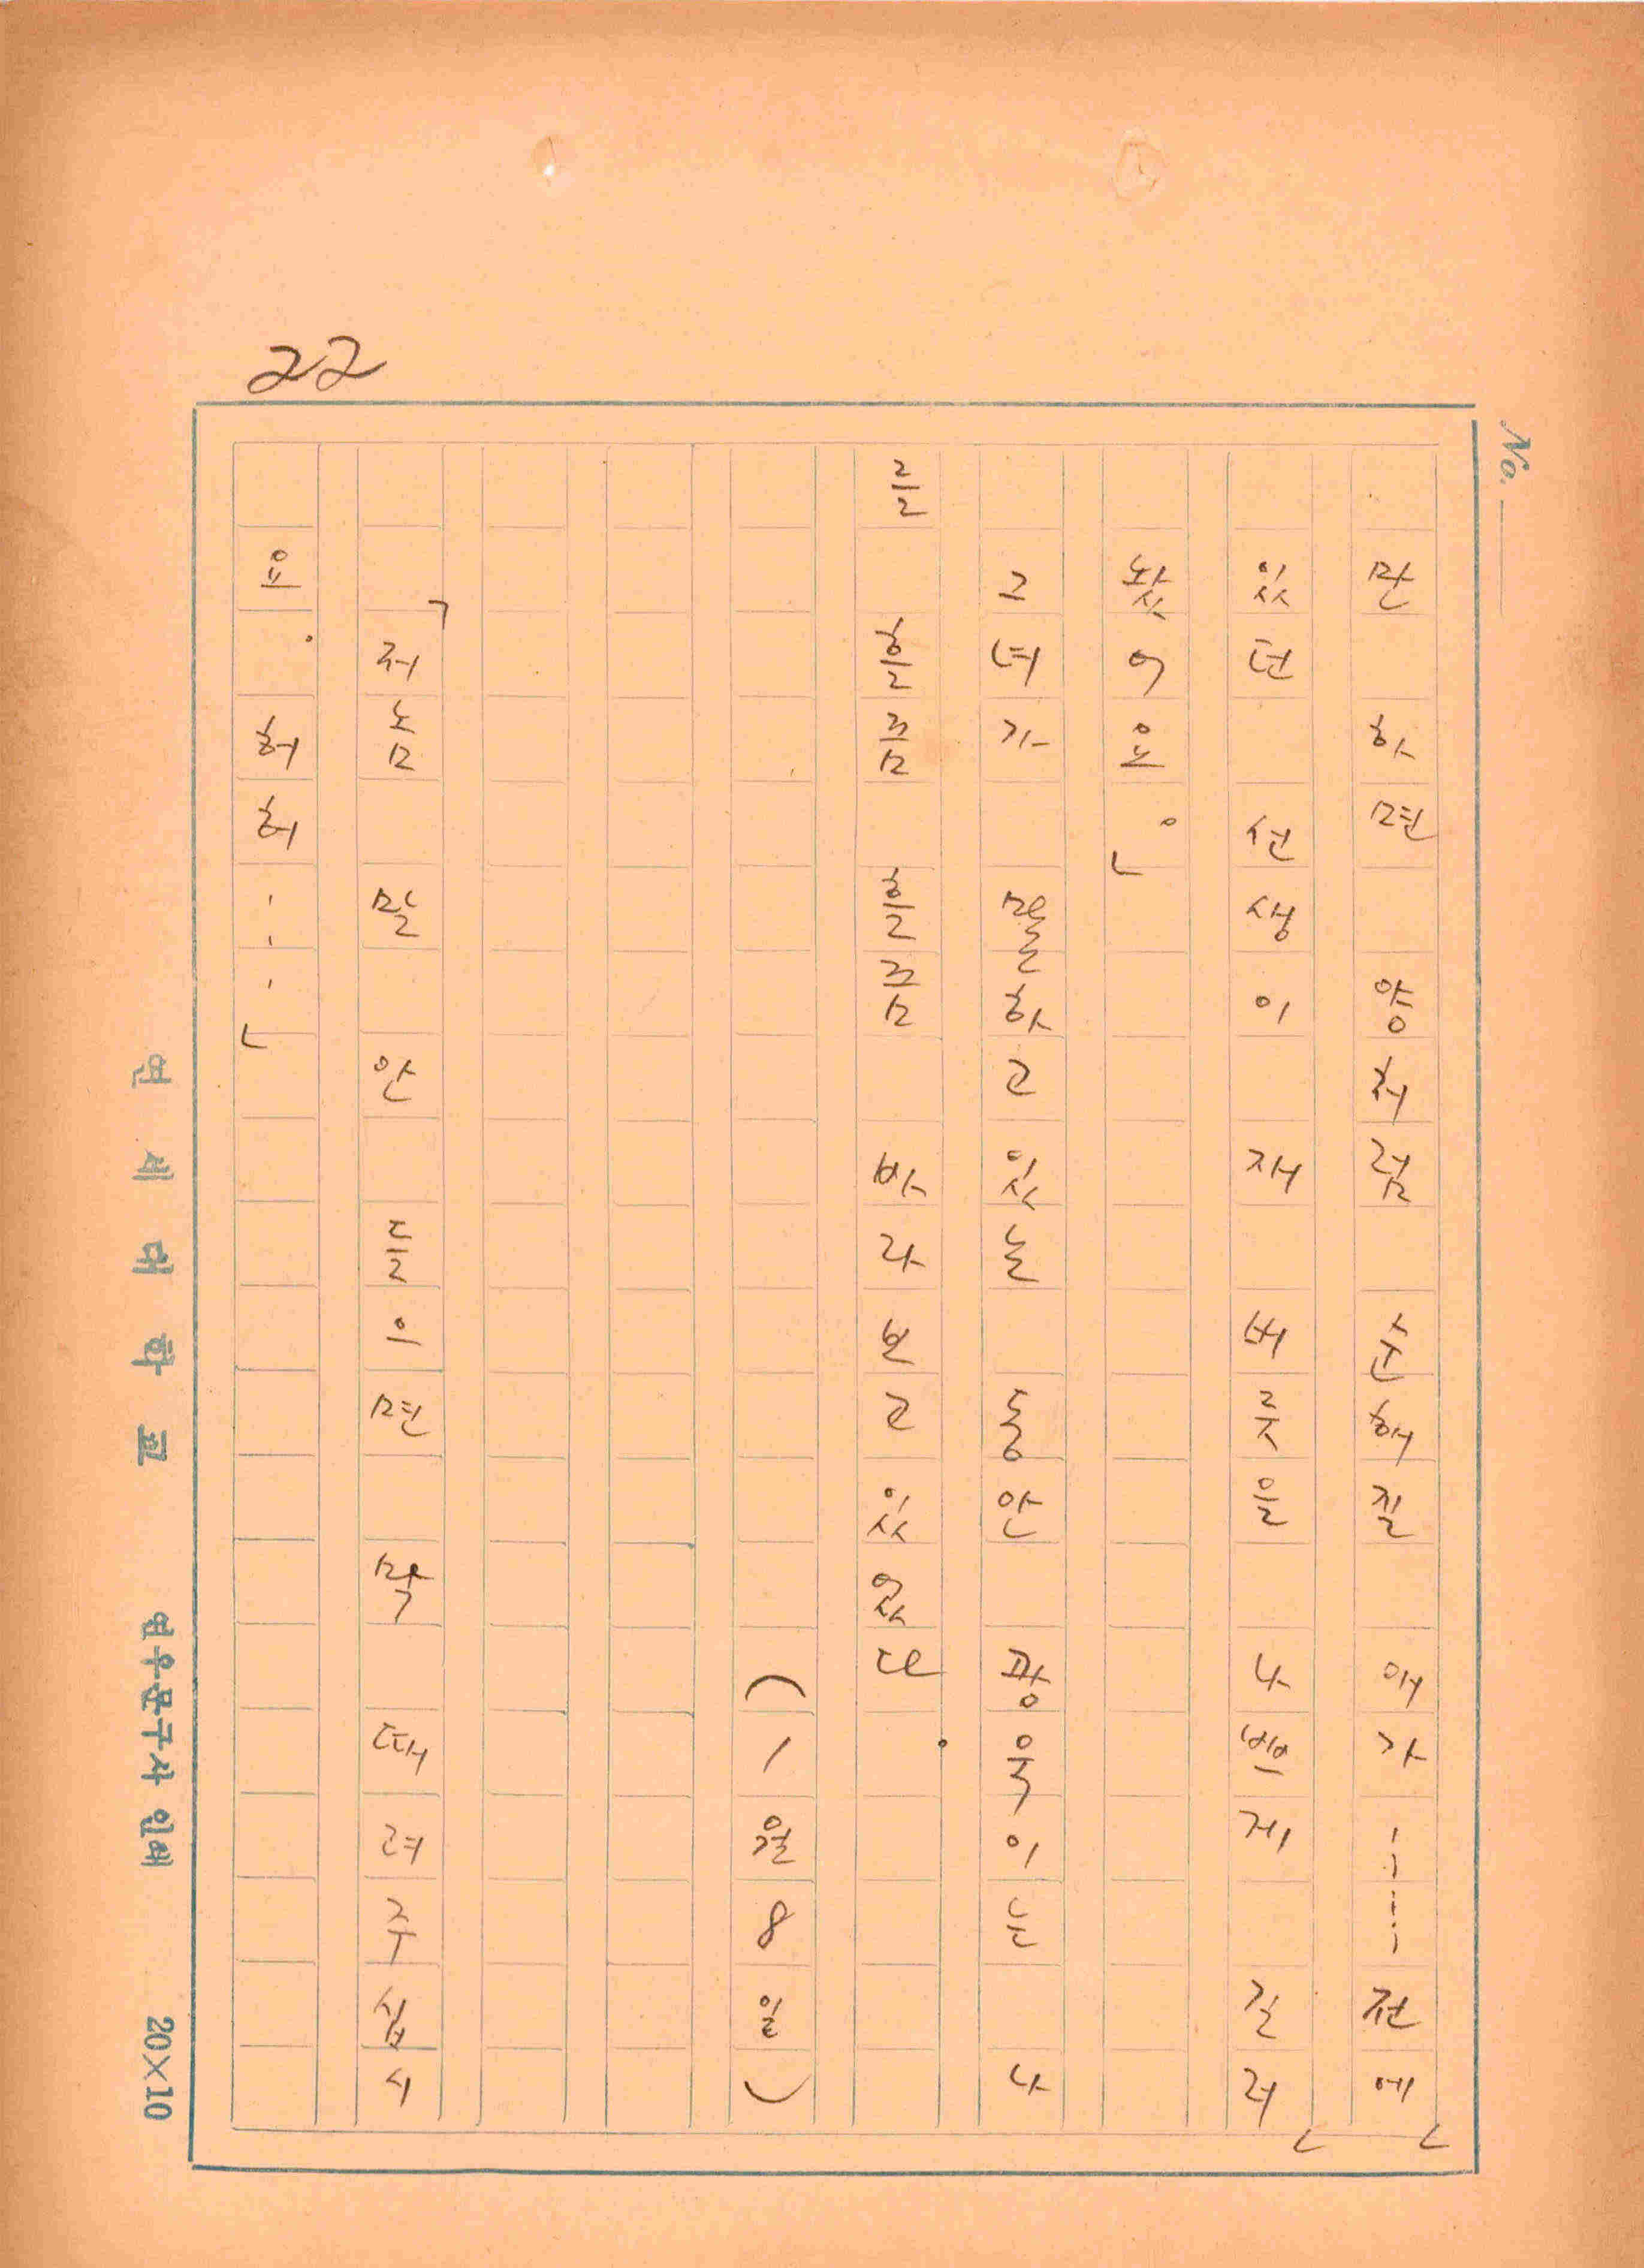 22
No.
만 하면 양처럼 순해질 애가……전에
있던 선생이 재 버릇을 나쁘게 길러
놨어요.」
그녀가 말하고 있는 동안 광욱이는 나
를 흘끔 흘끔 바라보고 있었다.
(1월 8일)
「저놈 말 안 들으면 막 때려주십시
요. 허허……」
연세대학교 연우문구사 인쇄 20×10